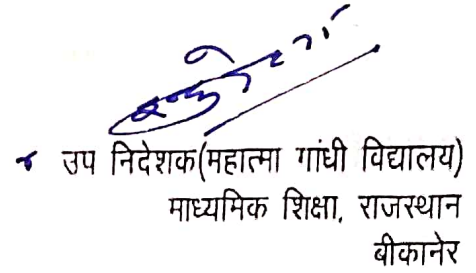 उप निदेशक(महात्मा गांधी विद्यालय)
माध्यमिक शिक्षा, राजस्थान
बीकानेर